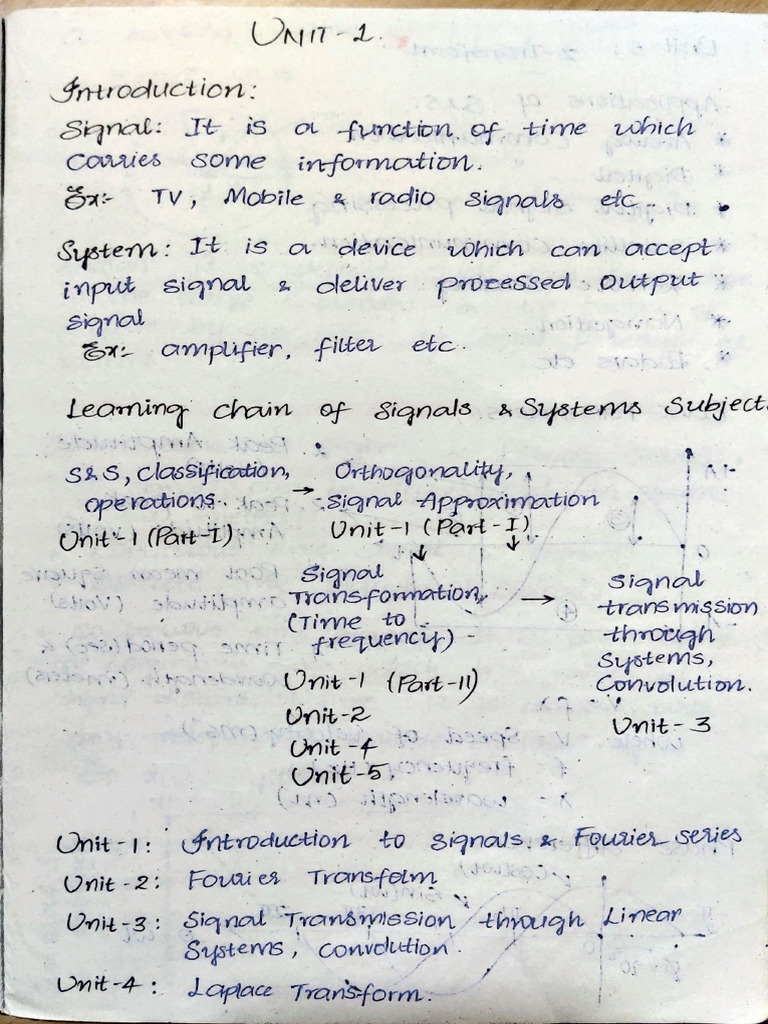 UNIT-1.
Introduction:
Signal: It is a function of time which
carries some information.
Ex:- TV, Mobile & radio signals etc.
System: It is a device which can accept
input signal & deliver processed output
signal
Ex:- amplifier, filter etc.
Learning chain of signals & Systems Subject.
S&S, Classification,
operations.
Unit-1 (Part-I)
→
Orthogonality,
Signal Approximation
Unit-1 (Part-I)
↓ ↓
Signal
Transformation,
(Time to
frequency)
Unit-1 (Part-II)
Unit-2
Unit-4
Unit-5.
→
Signal
transmission
through
Systems,
Convolution.
Unit-3
Unit-1: Introduction to signals & Fourier series
Unit-2: Fourier Transform
Unit-3: Signal Transmission through Linear
Systems, convolution.
Unit-4: Laplace Transform.